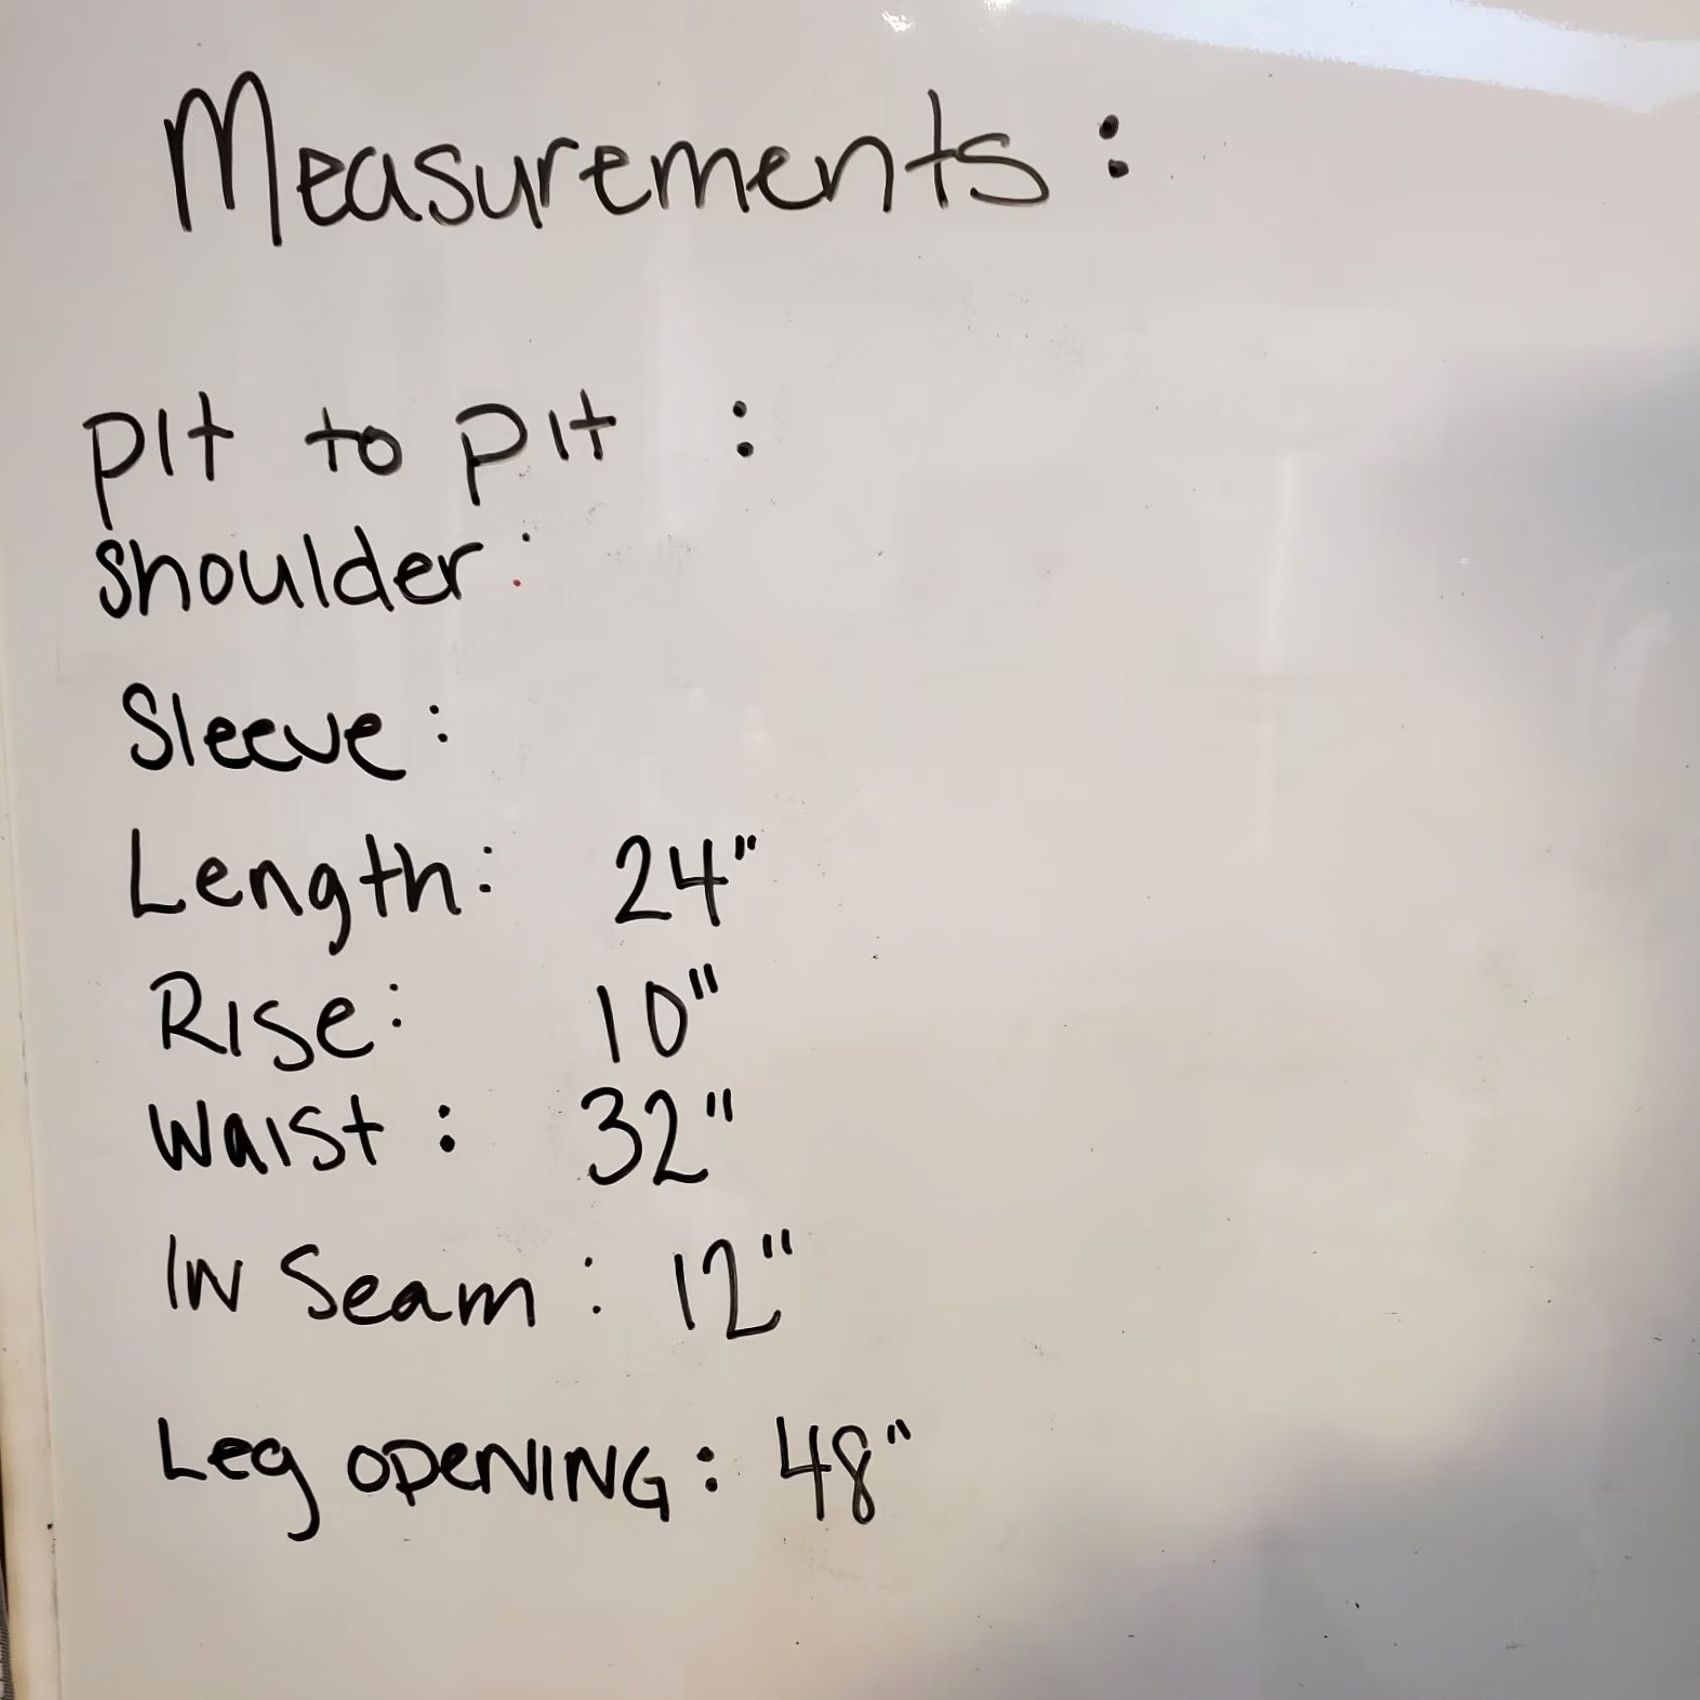 Measurements:
pit to pit :
Shoulder:
Sleeve:
Length: 24"
Rise: 10"
Waist: 32"
IN Seam: 12"
Leg OPENING: 48"